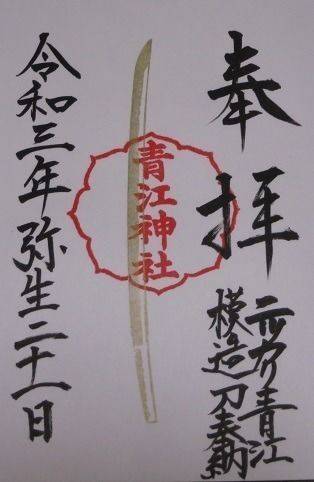 奉拝
ニッカリ青江
模造刀奉納
青江神社
令和三年弥生二十一日